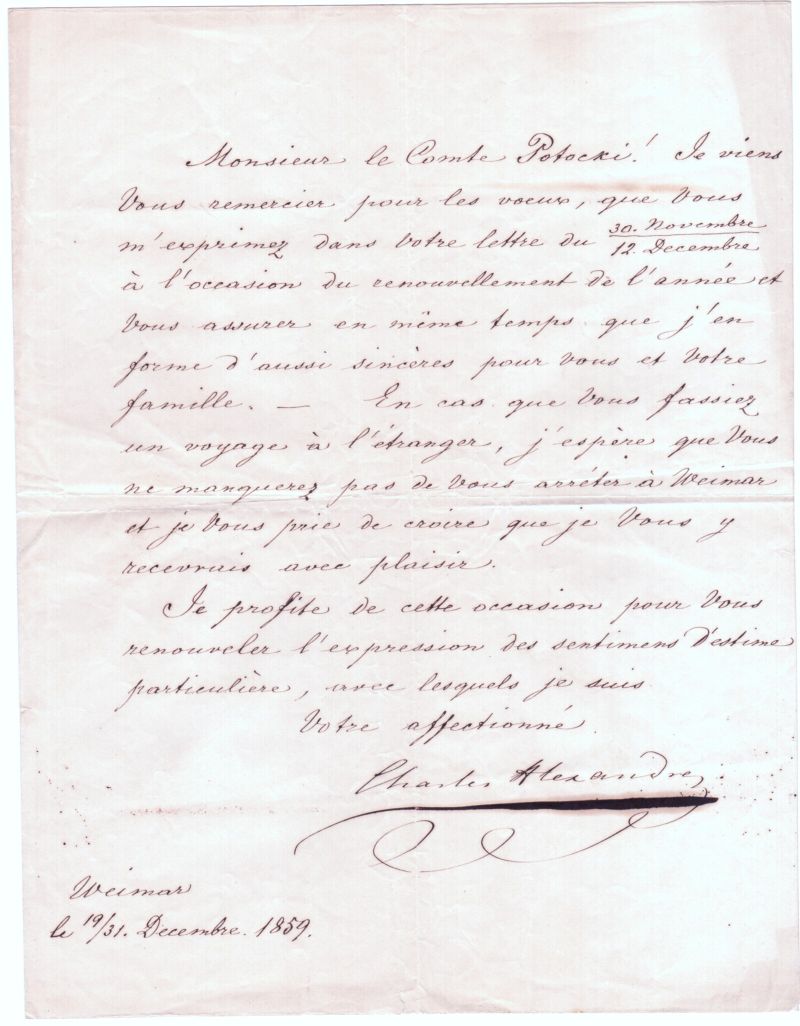 Monsieur le Comte Potocki! Je viens
Vous remercier pour les voeux, que Vous
m'exprimez dans Votre lettre du 30. Novembre
12. Decembre
à l'occasion du renouvellement de l'année et
Vous assurer en même temps que j'en
forme d'aussi sincères pour vous et Votre
famille. — En cas que Vous fassiez
un voyage à l'étranger, j'espère que Vous
ne manquerez pas de Vous arrêter à Weimar
et je Vous prie de croire que je Vous y
recevrais avec plaisir.
Je profite de cette occasion pour Vous
renouveler l'expression des sentimens d'estime
particulière, avec lesquels je suis
Votre affectionné
Charles Alexandre
Weimar
le 19/31. Decembre. 1859.